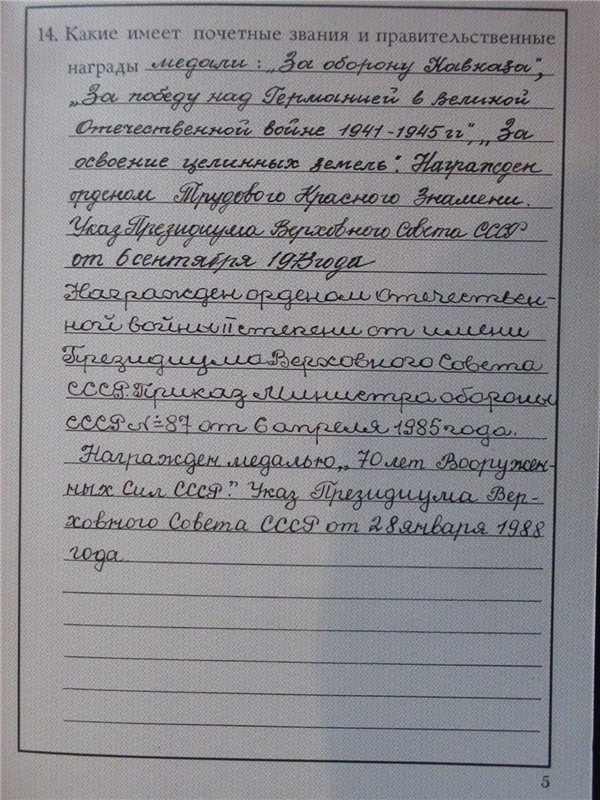 14. Какие имеет почетные звания и правительственные
награды медали: „За оборону Кавказа",
„За победу над Германией в Великой
Отечественной войне 1941-1945 гг", „За
освоение целинных земель". Награжден
орденом Трудового Красного Знамени.
Указ Президиума Верховного Совета СССР
от 6 сентября 1973 года
Награжден орденом Отечествен-
ной войны II степени от имени
Президиума Верховного Совета
СССР. Приказ Министра обороны
СССР № 87 от 6 апреля 1985 года.
Награжден медалью „70 лет Вооружен-
ных Сил СССР." Указ Президиума Вер-
ховного Совета СССР от 28 января 1988
года
5